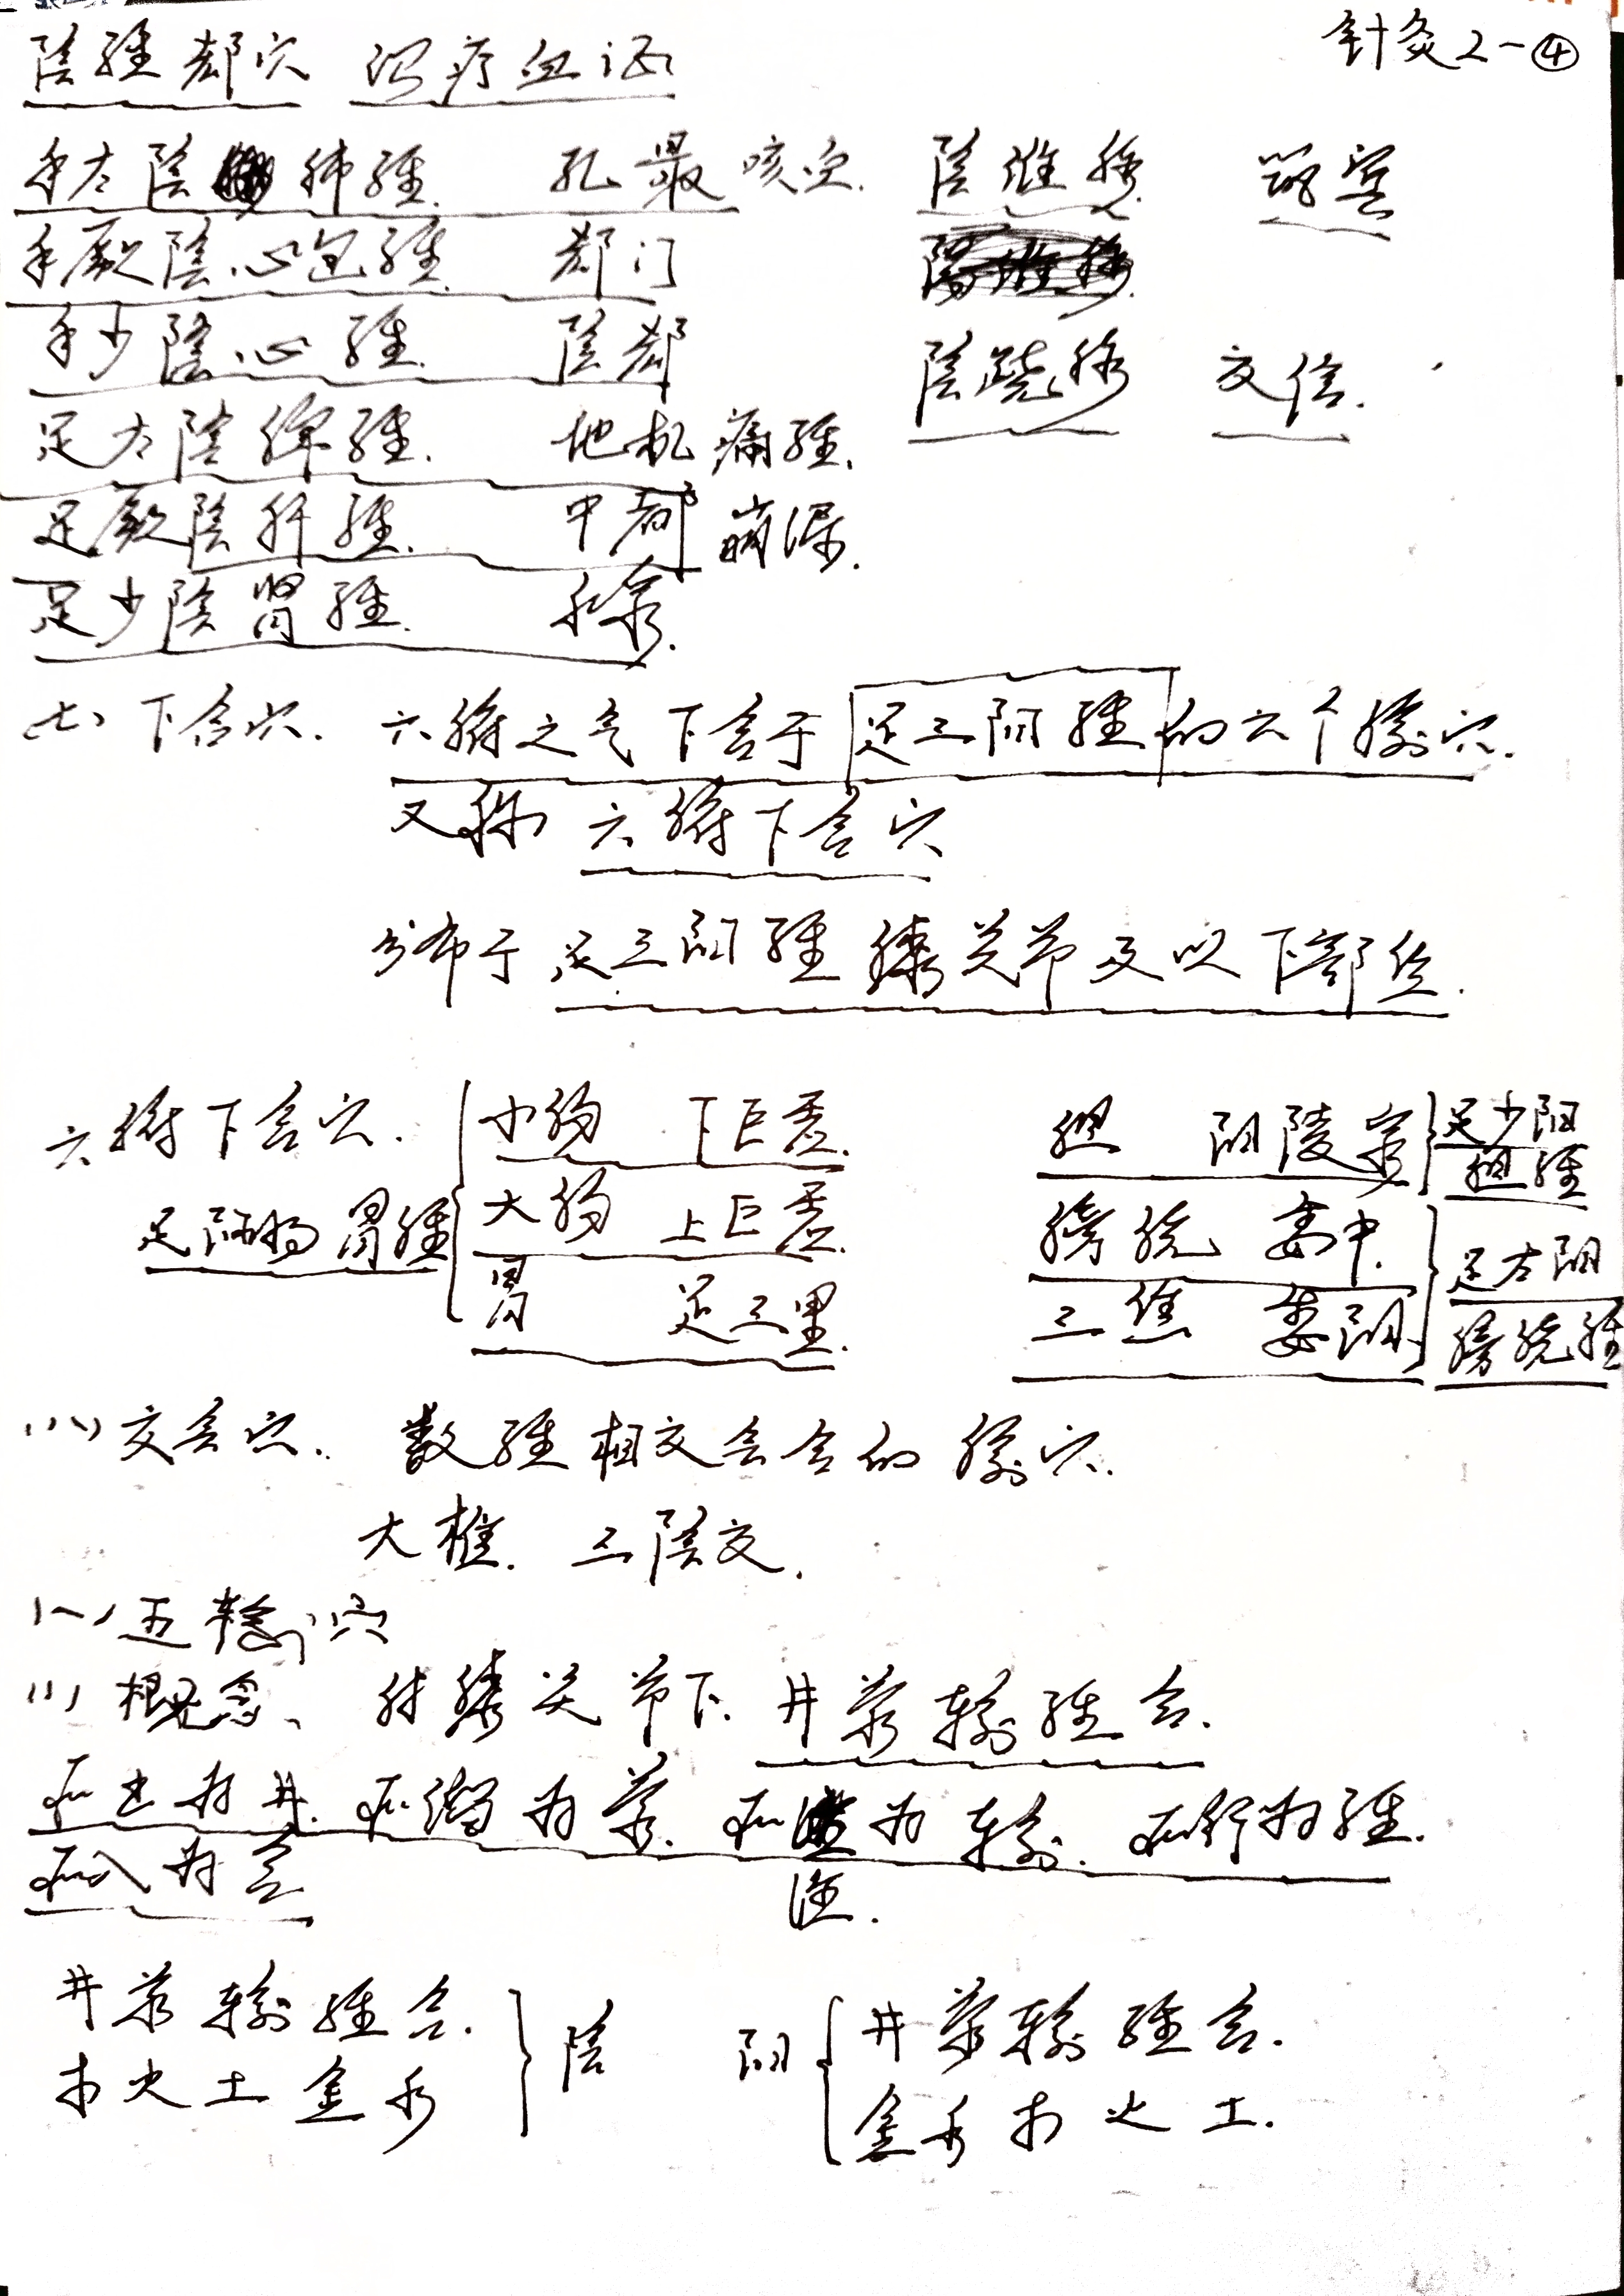 针灸2-④
陰經郄穴 治疗血证
手太陰肺經. 孔最 咳血. 陰維脉 筑宾
手厥陰心包經. 郄门
手少陰心經. 陰郄 陰蹺脉 交信.
足太陰脾經. 地机 痛經.
足厥陰肝經. 中都 崩漏.
足少陰腎經. 水泉.
(七) 下合穴. 六腑之气下合于足三阳經的六个腧穴.
又称 六腑下合穴
分布于足三阳經膝关节及以下部位.
六腑下合穴. 小肠 下巨虚. 胆 阳陵泉 足少阳
胆經
足阳明胃經 大肠 上巨虚. 膀胱 委中. 足太阳
胃 足三里. 三焦 委阳. 膀胱經
(八) 交会穴. 数經相交会合的腧穴.
大椎. 三陰交.
(一) 五输穴
(1) 概念、肘膝关节下. 井荥输經合.
所出为井. 所溜为荥. 所注为输. 所行为經.
所入为合 注.
井荥输經合. 陰 阳 井荥输經合.
木火土金水 金水木火土.